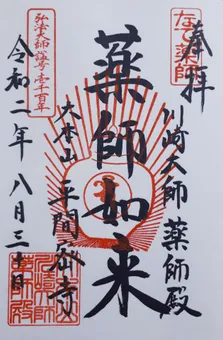 なで薬師
奉拝
川崎大師 薬師殿
薬師如来
大本山 平間寺
弘法大師諡号壱千百年
令和二年 八月三十日
薬師殿